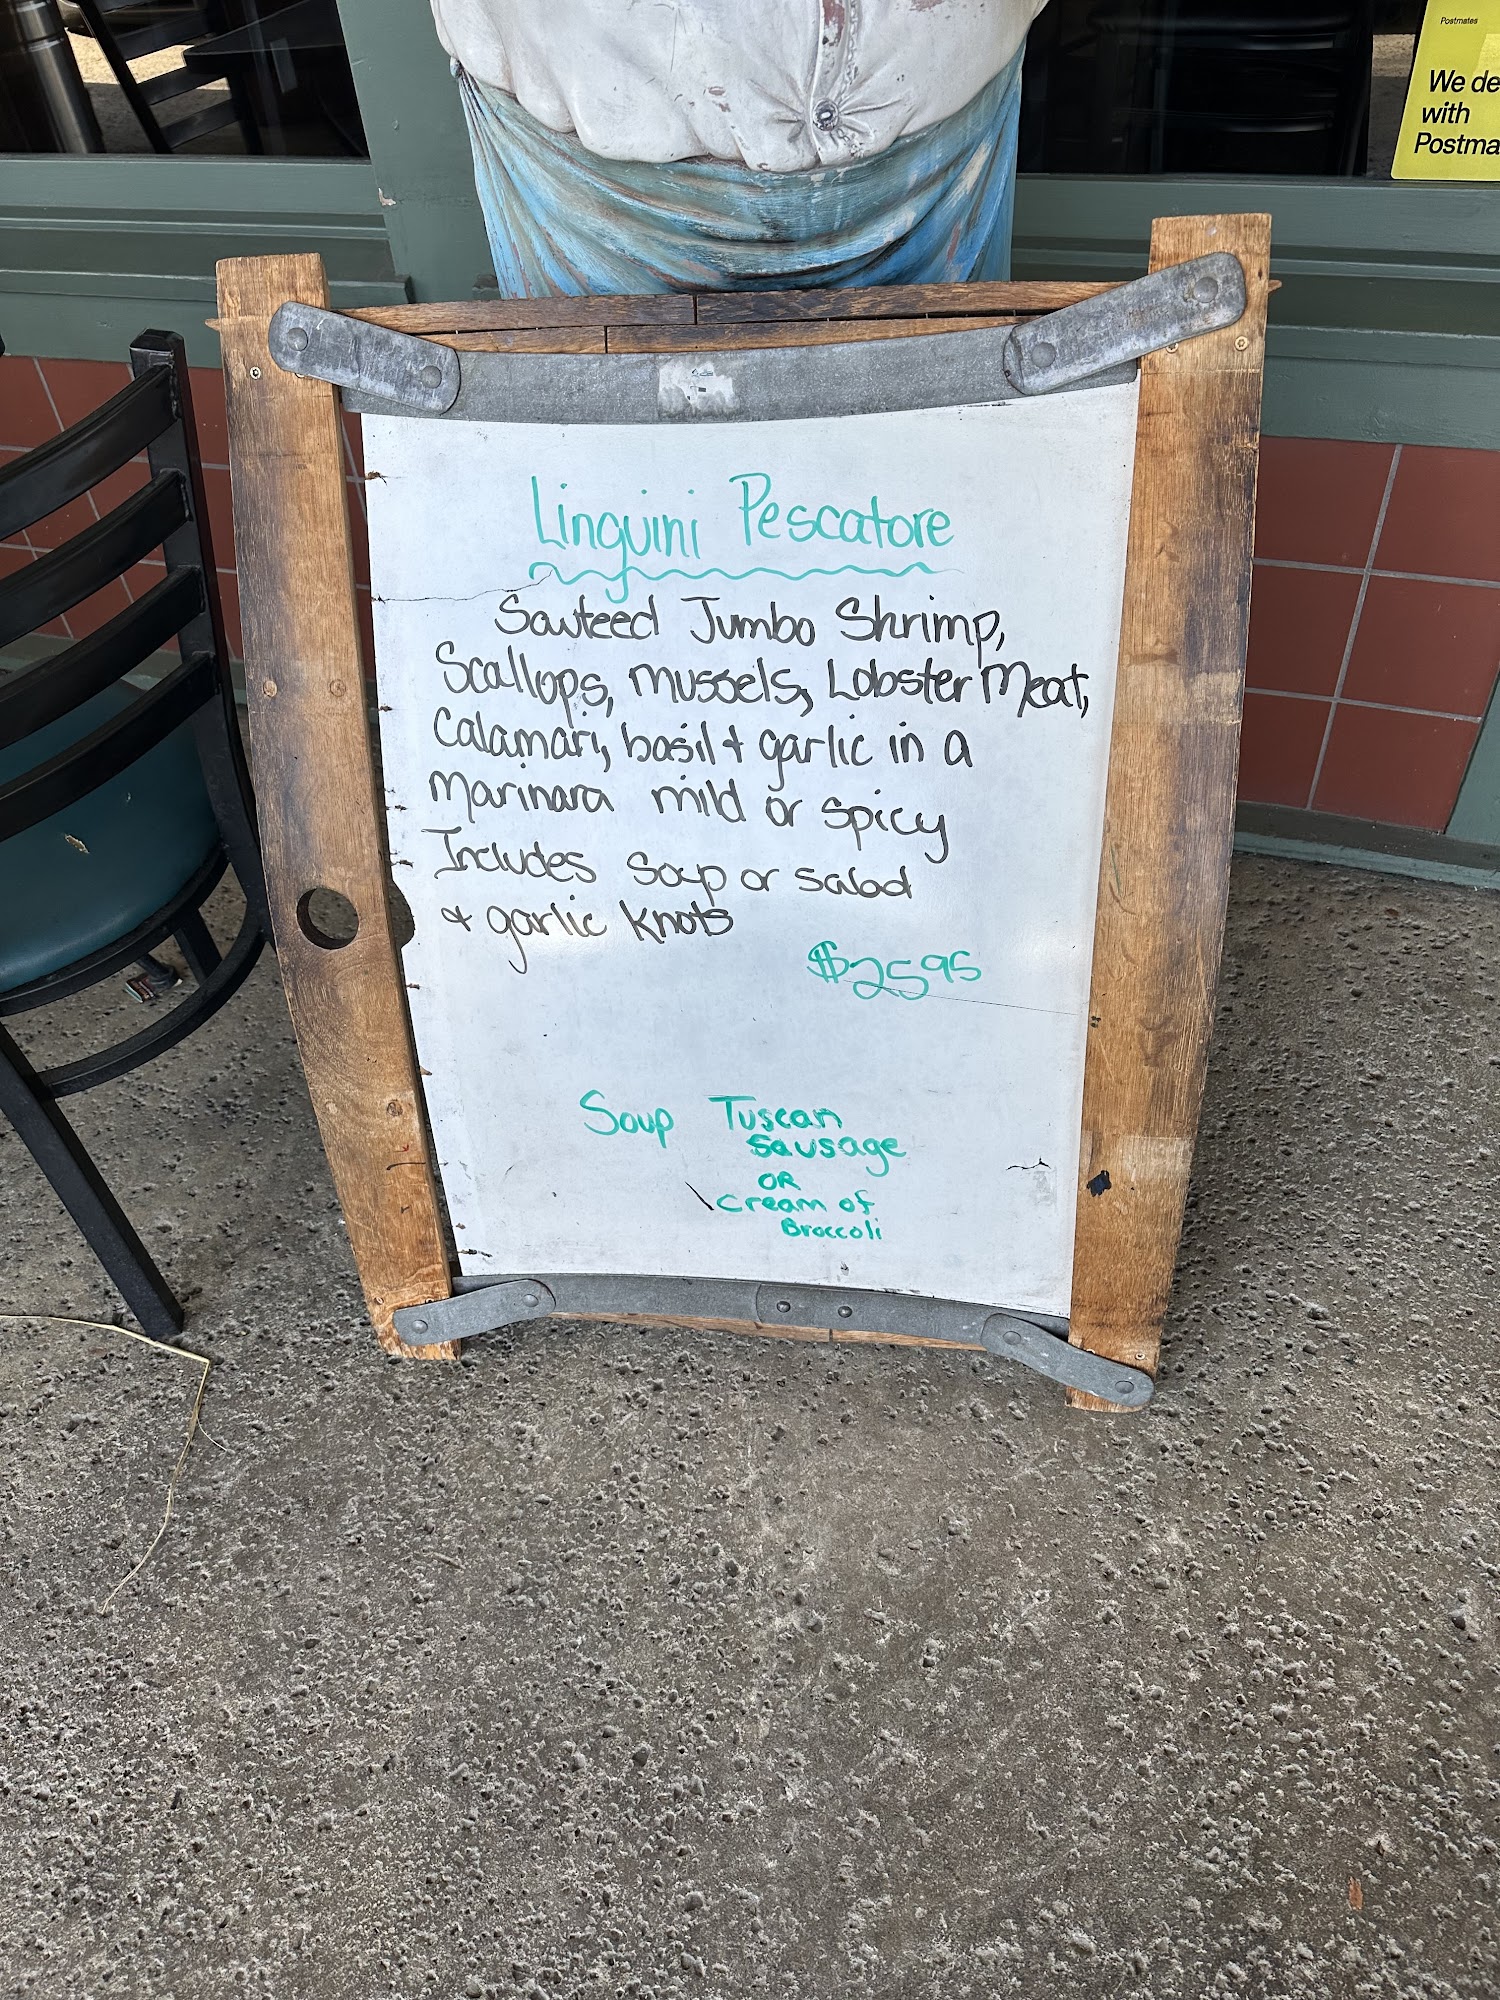 Postmates
We de
with
Postma
Linguini Pescatore
Sauteed Jumbo Shrimp,
Scallops, mussels, Lobster Meat,
Calamari, basil + garlic in a
Marinara mild or spicy
Includes Soup or salad
+ garlic knots
$25.95
Soup Tuscan
Sausage
OR
Cream of
Broccoli